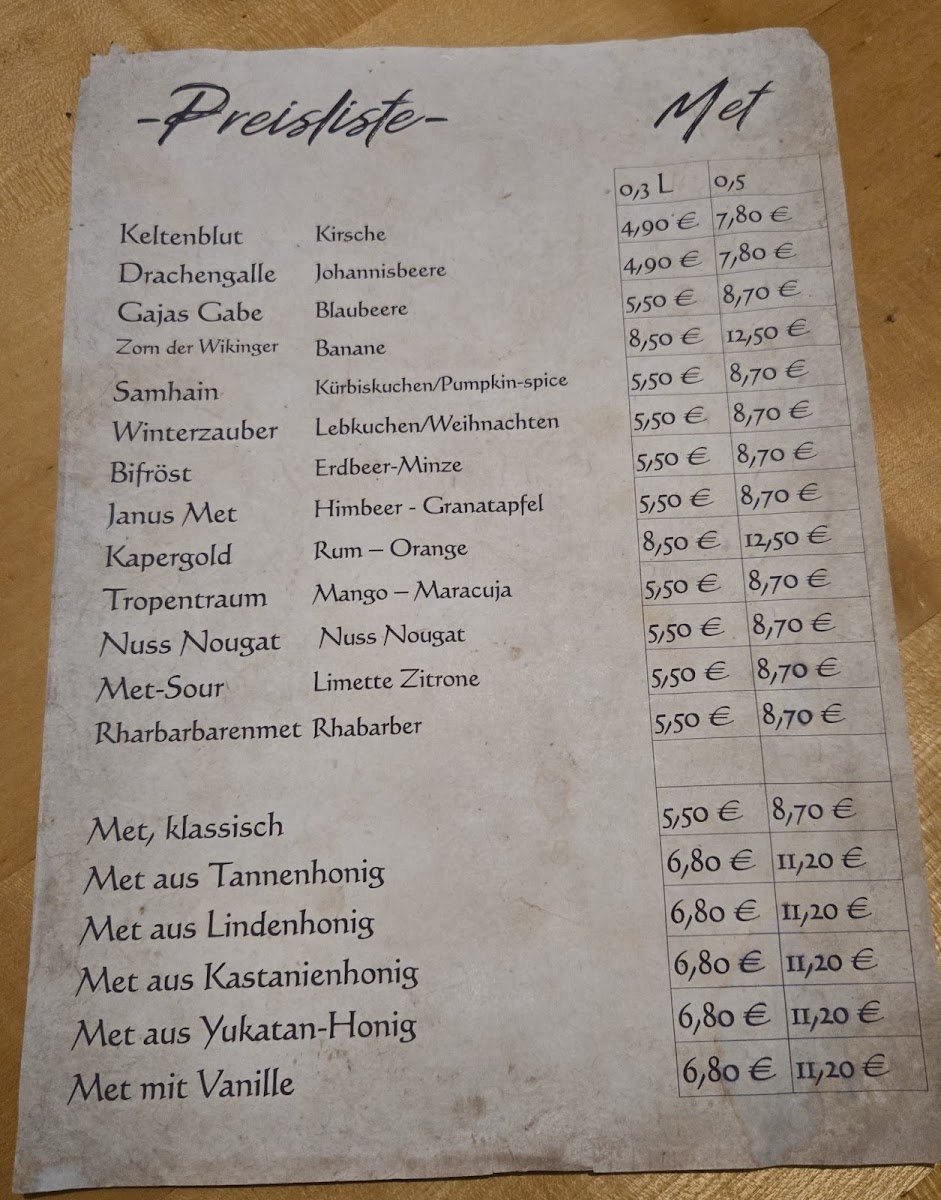 -Preisliste- Met
0,3 L 0,5
Keltenblut Kirsche 4,90 € 7,80 €
Drachengalle Johannisbeere 4,90 € 7,80 €
Gajas Gabe Blaubeere 5,50 € 8,70 €
Zorn der Wikinger Banane 8,50 € 12,50 €
Samhain Kürbiskuchen/Pumpkin-spice 5,50 € 8,70 €
Winterzauber Lebkuchen/Weihnachten 5,50 € 8,70 €
Bifröst Erdbeer-Minze 5,50 € 8,70 €
Janus Met Himbeer - Granatapfel 5,50 € 8,70 €
Kapergold Rum – Orange 8,50 € 12,50 €
Tropentraum Mango – Maracuja 5,50 € 8,70 €
Nuss Nougat Nuss Nougat 5,50 € 8,70 €
Met-Sour Limette Zitrone 5,50 € 8,70 €
Rharbarbarenmet Rhabarber 5,50 € 8,70 €
Met, klassisch 5,50 € 8,70 €
Met aus Tannenhonig 6,80 € 11,20 €
Met aus Lindenhonig 6,80 € 11,20 €
Met aus Kastanienhonig 6,80 € 11,20 €
Met aus Yukatan-Honig 6,80 € 11,20 €
Met mit Vanille 6,80 € 11,20 €